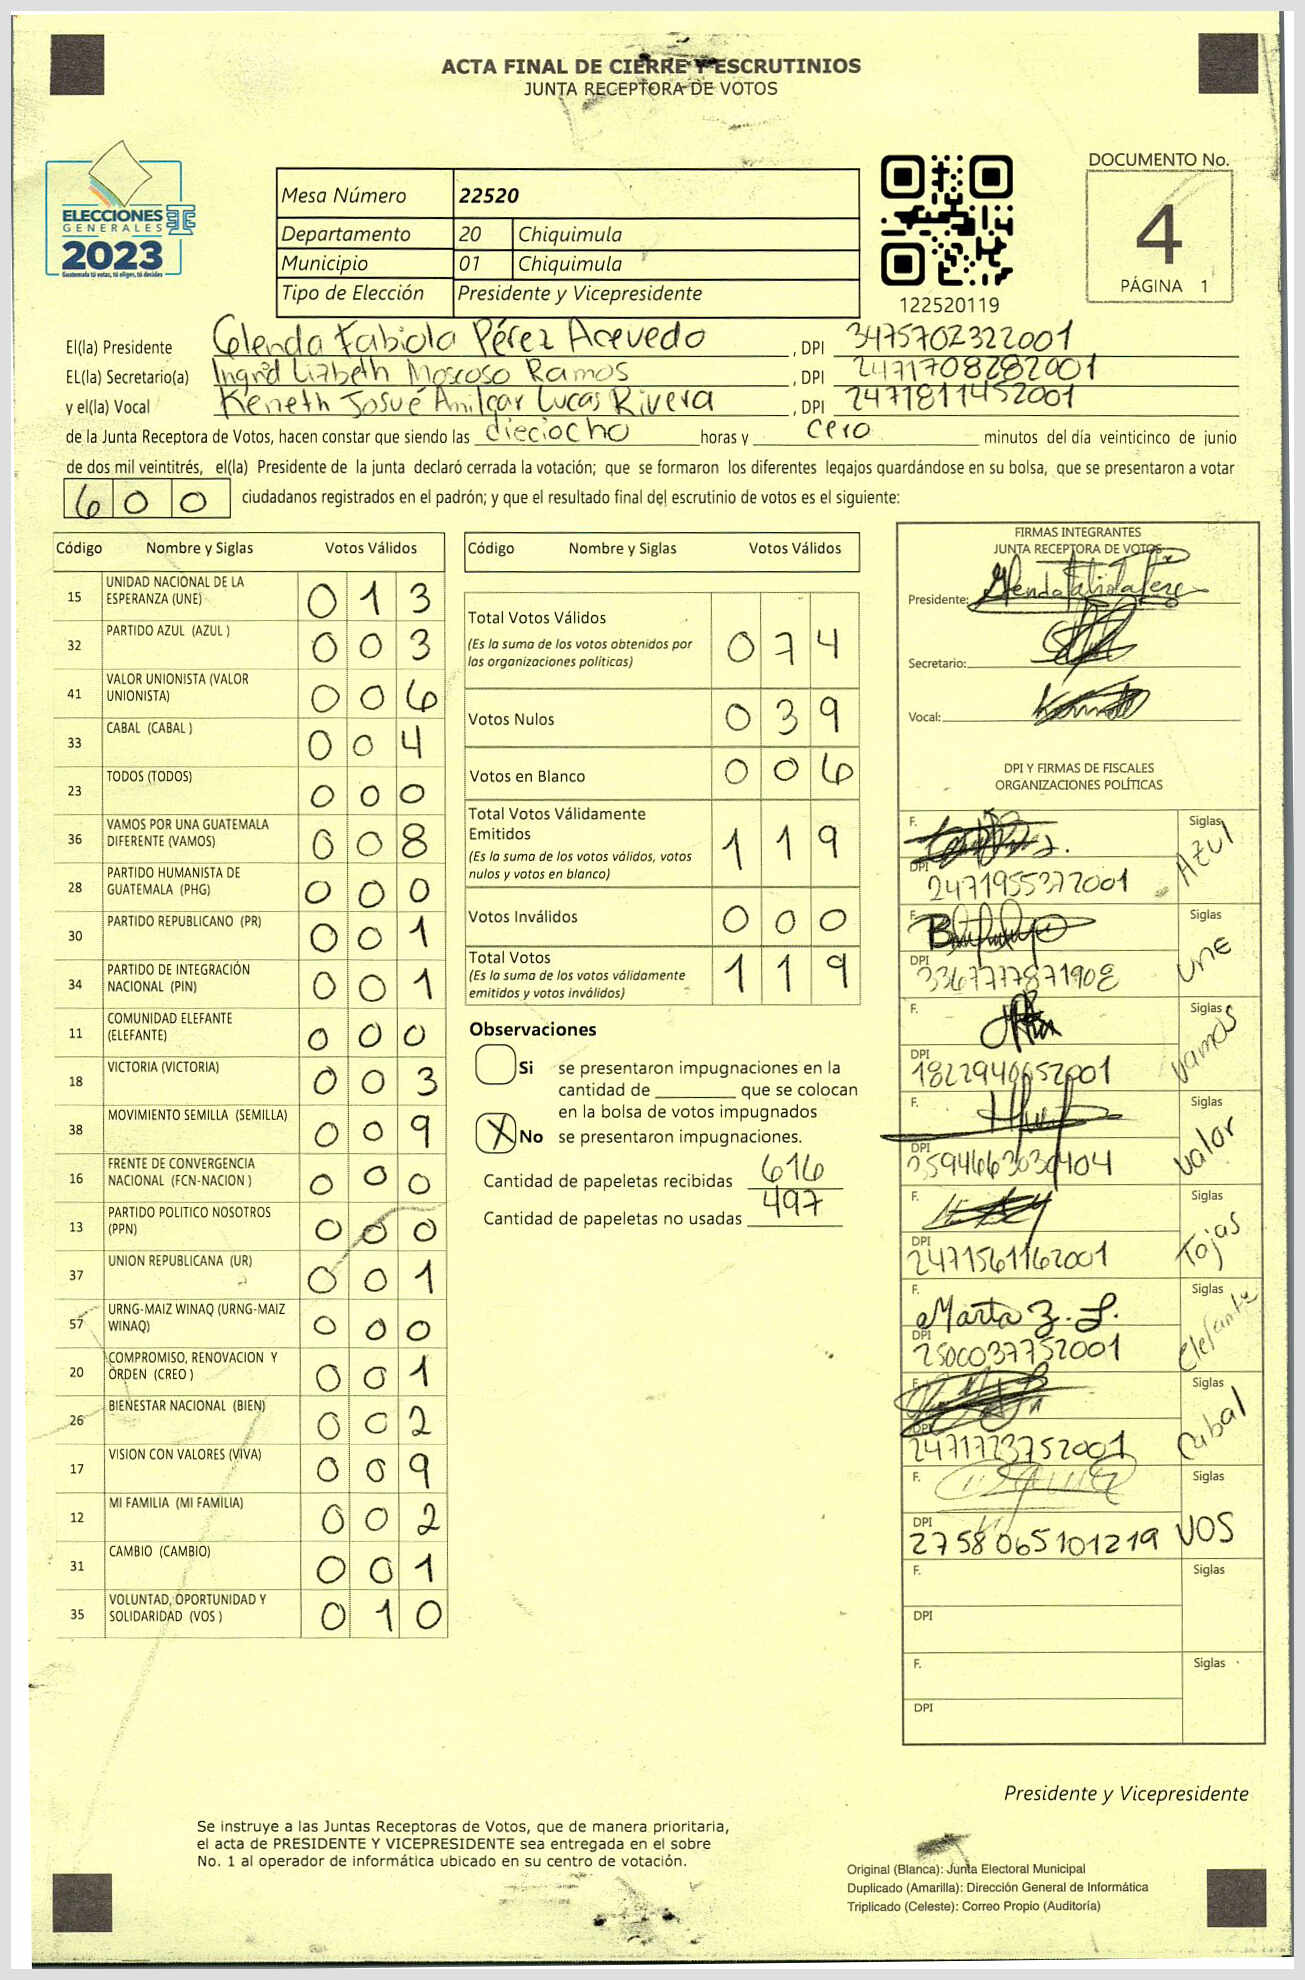 ACTA FINAL DE CIERRE Y ESCRUTINIOS
JUNTA RECEPTORA DE VOTOS
ELECCIONES
GENERALES
2023
Guatemala tú votas, tú eliges, tú decides
Mesa Número 22520
Departamento 20 Chiquimula
Municipio 01 Chiquimula
Tipo de Elección Presidente y Vicepresidente
122520119
DOCUMENTO No.
4
PÁGINA 1
El(la) Presidente Glenda Fabiola Pérez Acevedo, DPI 3475702322001
EL(la) Secretario(a) Ingrid Lizbeth Moscoso Ramos, DPI 2471708282001
y el(la) Vocal Keneth Josué Amilcar Lucas Rivera, DPI 2471811452001
de la Junta Receptora de Votos, hacen constar que siendo las dieciocho horas y cero minutos del día veinticinco de junio
de dos mil veintitrés, el(la) Presidente de la junta declaró cerrada la votación; que se formaron los diferentes legajos guardándose en su bolsa, que se presentaron a votar
600 ciudadanos registrados en el padrón; y que el resultado final del escrutinio de votos es el siguiente:
Código Nombre y Siglas Votos Válidos
15 UNIDAD NACIONAL DE LA ESPERANZA (UNE) 013
32 PARTIDO AZUL (AZUL ) 003
41 VALOR UNIONISTA (VALOR UNIONISTA) 006
33 CABAL (CABAL ) 004
23 TODOS (TODOS) 000
36 VAMOS POR UNA GUATEMALA DIFERENTE (VAMOS) 008
28 PARTIDO HUMANISTA DE GUATEMALA (PHG) 000
30 PARTIDO REPUBLICANO (PR) 001
34 PARTIDO DE INTEGRACIÓN NACIONAL (PIN) 001
11 COMUNIDAD ELEFANTE (ELEFANTE) 000
18 VICTORIA (VICTORIA) 003
38 MOVIMIENTO SEMILLA (SEMILLA) 009
16 FRENTE DE CONVERGENCIA NACIONAL (FCN-NACION ) 000
13 PARTIDO POLITICO NOSOTROS (PPN) 000
37 UNION REPUBLICANA (UR) 001
57 URNG-MAIZ WINAQ (URNG-MAIZ WINAQ) 000
20 COMPROMISO, RENOVACION Y ORDEN (CREO ) 001
26 BIENESTAR NACIONAL (BIEN) 002
17 VISION CON VALORES (VIVA) 009
12 MI FAMILIA (MI FAMILIA) 002
31 CAMBIO (CAMBIO) 001
35 VOLUNTAD, OPORTUNIDAD Y SOLIDARIDAD (VOS ) 010
Código Nombre y Siglas Votos Válidos
Total Votos Válidos 074
(Es la suma de los votos obtenidos por
las organizaciones políticas)
Votos Nulos 039
Votos en Blanco 006
Total Votos Válidamente
Emitidos 119
(Es la suma de los votos válidos, votos
nulos y votos en blanco)
Votos Inválidos 000
Total Votos 119
(Es la suma de los votos válidamente
emitidos y votos inválidos)
Observaciones
Si se presentaron impugnaciones en la
cantidad de ________ que se colocan
en la bolsa de votos impugnados
X No se presentaron impugnaciones.
Cantidad de papeletas recibidas 616
Cantidad de papeletas no usadas 497
FIRMAS INTEGRANTES
JUNTA RECEPTORA DE VOTOS
Presidente:
Secretario:
Vocal:
DPI Y FIRMAS DE FISCALES
ORGANIZACIONES POLÍTICAS
F. Siglas Azul
DPI 2471955372001
F. Siglas UNE
DPI
F. Siglas Vamos
DPI 1822940652001
F. Siglas Valor
DPI
F. Siglas Tojas
DPI 2471561162001
F. Marta Z. L. Siglas Elefante
DPI 2500037752001
F. Siglas Cabal
DPI 2471723752001
F. Siglas VOS
DPI 2758065101219
F. Siglas
DPI
F. Siglas
DPI
Presidente y Vicepresidente
Se instruye a las Juntas Receptoras de Votos, que de manera prioritaria,
el acta de PRESIDENTE Y VICEPRESIDENTE sea entregada en el sobre
No. 1 al operador de informática ubicado en su centro de votación.
Original (Blanca): Junta Electoral Municipal
Duplicado (Amarilla): Dirección General de Informática
Triplicado (Celeste): Correo Propio (Auditoría)